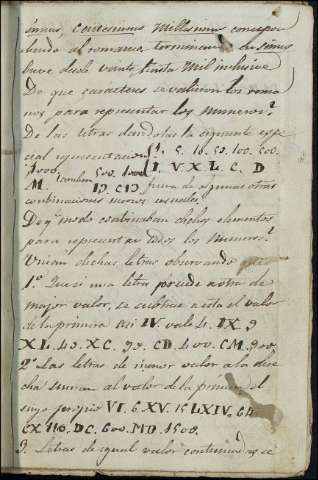 simas, centesimas millesimas correspon
diendo al romano terminacion de simus
breve desde veinte, hasta mil inclusive
De que caracteres se valieron los roma
nos para representar los numeros?
De las letras dandolas la siguiente espe
cial representacion { 1. 5. 10. 50. 100. 500.
1000. { I. V. X. L. C. D
M. tambien 500. 1000
IƆ. CIƆ fuera de algunas otras
combinaciones menos usuales.
De que modo combinaban dichos elementos
para representar todos los numeros?
Unian dichas letras observando
1.º Que si una letra precede a otra de
mayor valor, se sustrae a esta el valor
de la primera asi IV. vale 4. IX. 9
XL. 40. XC. 90. CD. 400. CM. 900.
2.º Las letras de menor valor a la dere
cha unian al valor de la primera el
suyo propio VI. 6. XV. 15 LXIV. 64
CX 110. DC. 600. MD. 1500.
3. Letras de igual valor continuadas se